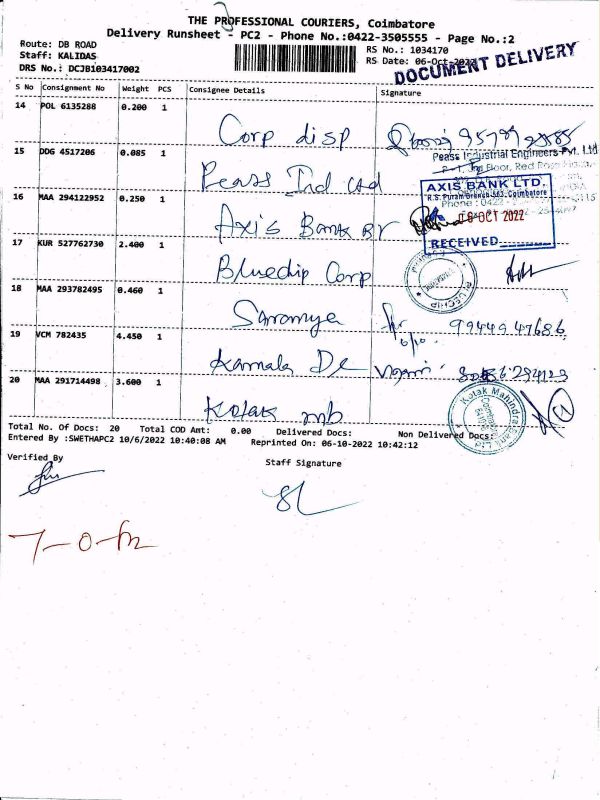 THE PROFESSIONAL COURIERS, Coimbatore
Delivery Runsheet - PC2 - Phone No.:0422-3505555 - Page No.:2
Route: DB ROAD
Staff: KALIDAS
DRS No.: DCJB103417002
RS No.: 1034170
RS Date: 06-Oct-2022
DOCUMENT DELIVERY
S No Consignment No Weight PCS Consignee Details Signature
14 POL 6135288 0.200 1
Corp disp
15 DDG 4517206 0.085 1
Peass Industrial Engineers Pvt. Ltd
Floor, Red Rose
Peass Ind Ltd
16 MAA 294122952 0.250 1
AXIS BANK LTD.
R.S. Puram Branch-563, Coimbatore
06 OCT 2022
RECEIVED
Axis Bank Br
17 KUR 527762730 2.400 1
Bluechip Corp
BLUECHIP
18 MAA 293782495 0.460 1
Saromya 9944947686
6/10.
19 VCM 782435 4.450 1
Kamala De
20 MAA 291714498 3.600 1
Kotak mb
Kotak Mahindra Bank Ltd
Total No. Of Docs: 20 Total COD Amt: 0.00 Delivered Docs: Non Delivered Docs:
Entered By :SWETHAPC2 10/6/2022 10:40:08 AM Reprinted On: 06-10-2022 10:42:12
Verified By
Staff Signature